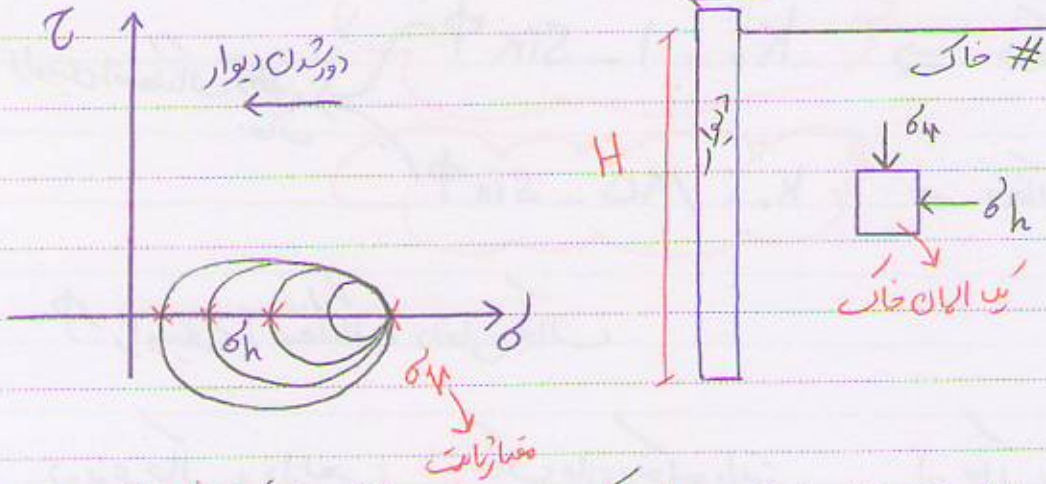 τ
دور شدن دیوار
σh
σv
σ
مقدار ثابت
H
دیوار
# خاک
σv
σh
یک المان خاک